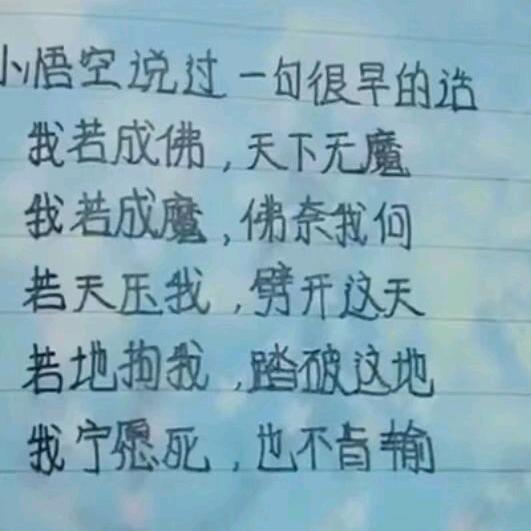 小悟空说过一句很早的话
我若成佛,天下无魔
我若成魔,佛奈我何
若天压我,劈开这天
若地拘我,踏破这地
我宁愿死,也不肯输